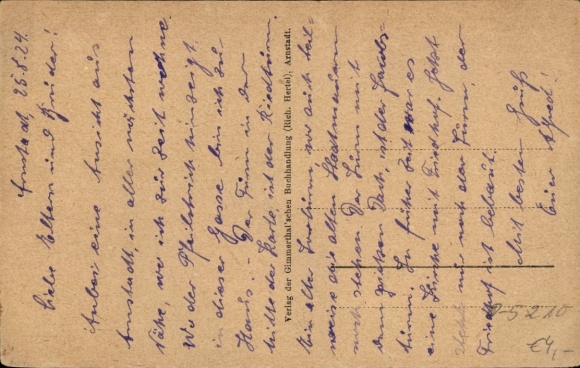 Arnstadt, 25.8.24.
Liebe Eltern und Brüder!
Anbei eine Ansicht aus
Arnstadt, in aller nächsten
Nähe, wo ich zur Zeit wohne.
Wo der Pfeilstrich hinzeigt,
in dieser Gasse bin ich zu
Haus. - Der Turm in der
Mitte der Karte, ist der Riedturm.
Verlag der Gimmerthal'schen Buchhandlung (Rich. Hertel), Arnstadt.
Ein alter wo auch teil-
weise die alten Stadtmauern
noch stehen. Der Turm mit
dem spitzen Dach, ist der Jacobs-
turm. In früher Zeit war es
eine Kirche mit Friedhof. Jetzt
steht nur noch der Turm, der
Friedhof ist bebaut.
Mit besten Gruß
Euer
25210
€4,-